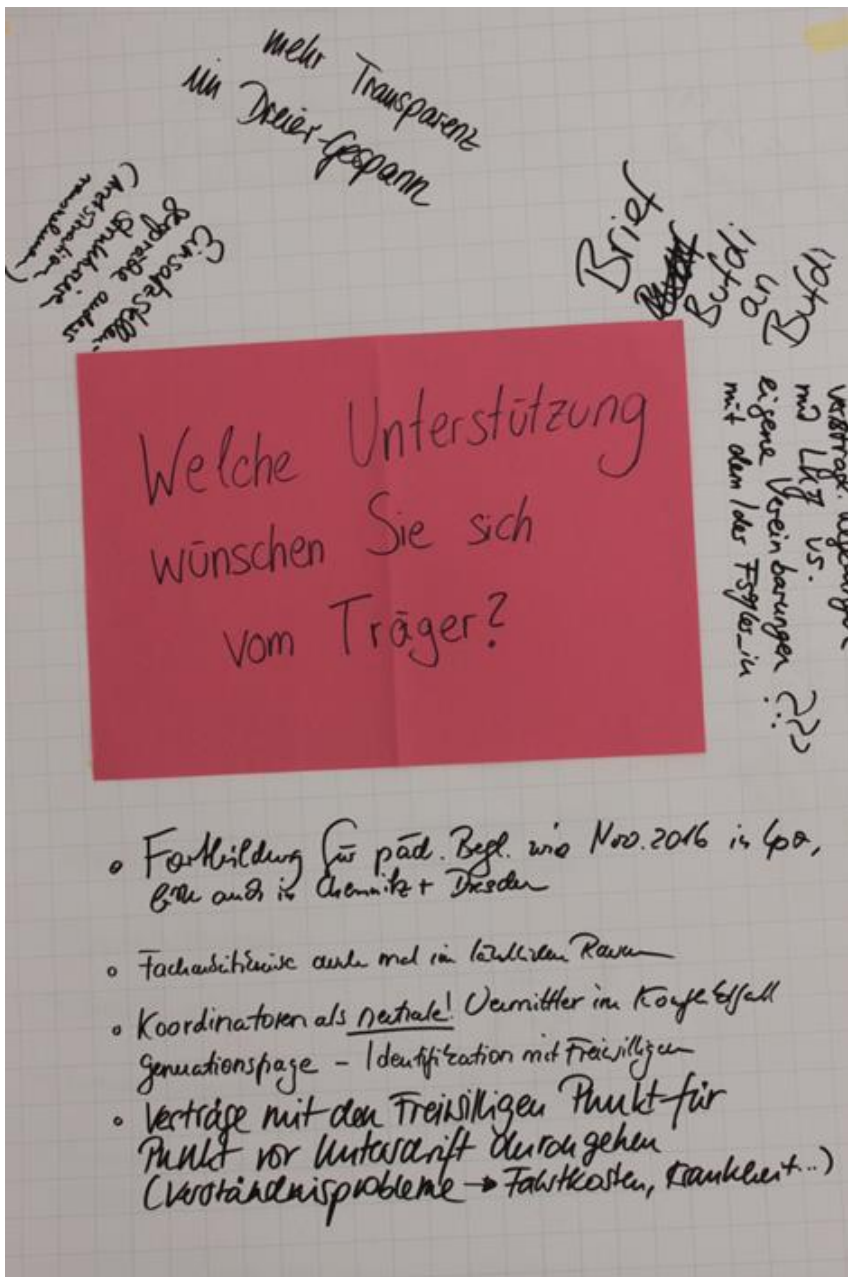 mehr Transparenz
im Dreier-Gespann
Einsatzstellen-
gespräche anders
strukturieren
(
)
Brief
Bufdi
an
Bufdi
mit LKJ vs.
eigene Vereinbarungen
mit dem/der FSJler_in
Welche Unterstützung
wünschen Sie sich
vom Träger?
• Fortbildung für päd. Begl. wie Nov. 2016 in Lpz,
bitte auch in Chemnitz + Dresden
• Facharbeitskreise auch mal im ländlichen Raum
• Koordinatoren als neutrale! Vermittler im Konfliktfall
Generationsfrage – Identifikation mit Freiwilligen
• Verträge mit den Freiwilligen Punkt für
Punkt vor Unterschrift durchgehen
(Verständnisprobleme → Fahrtkosten, Krankheit..)